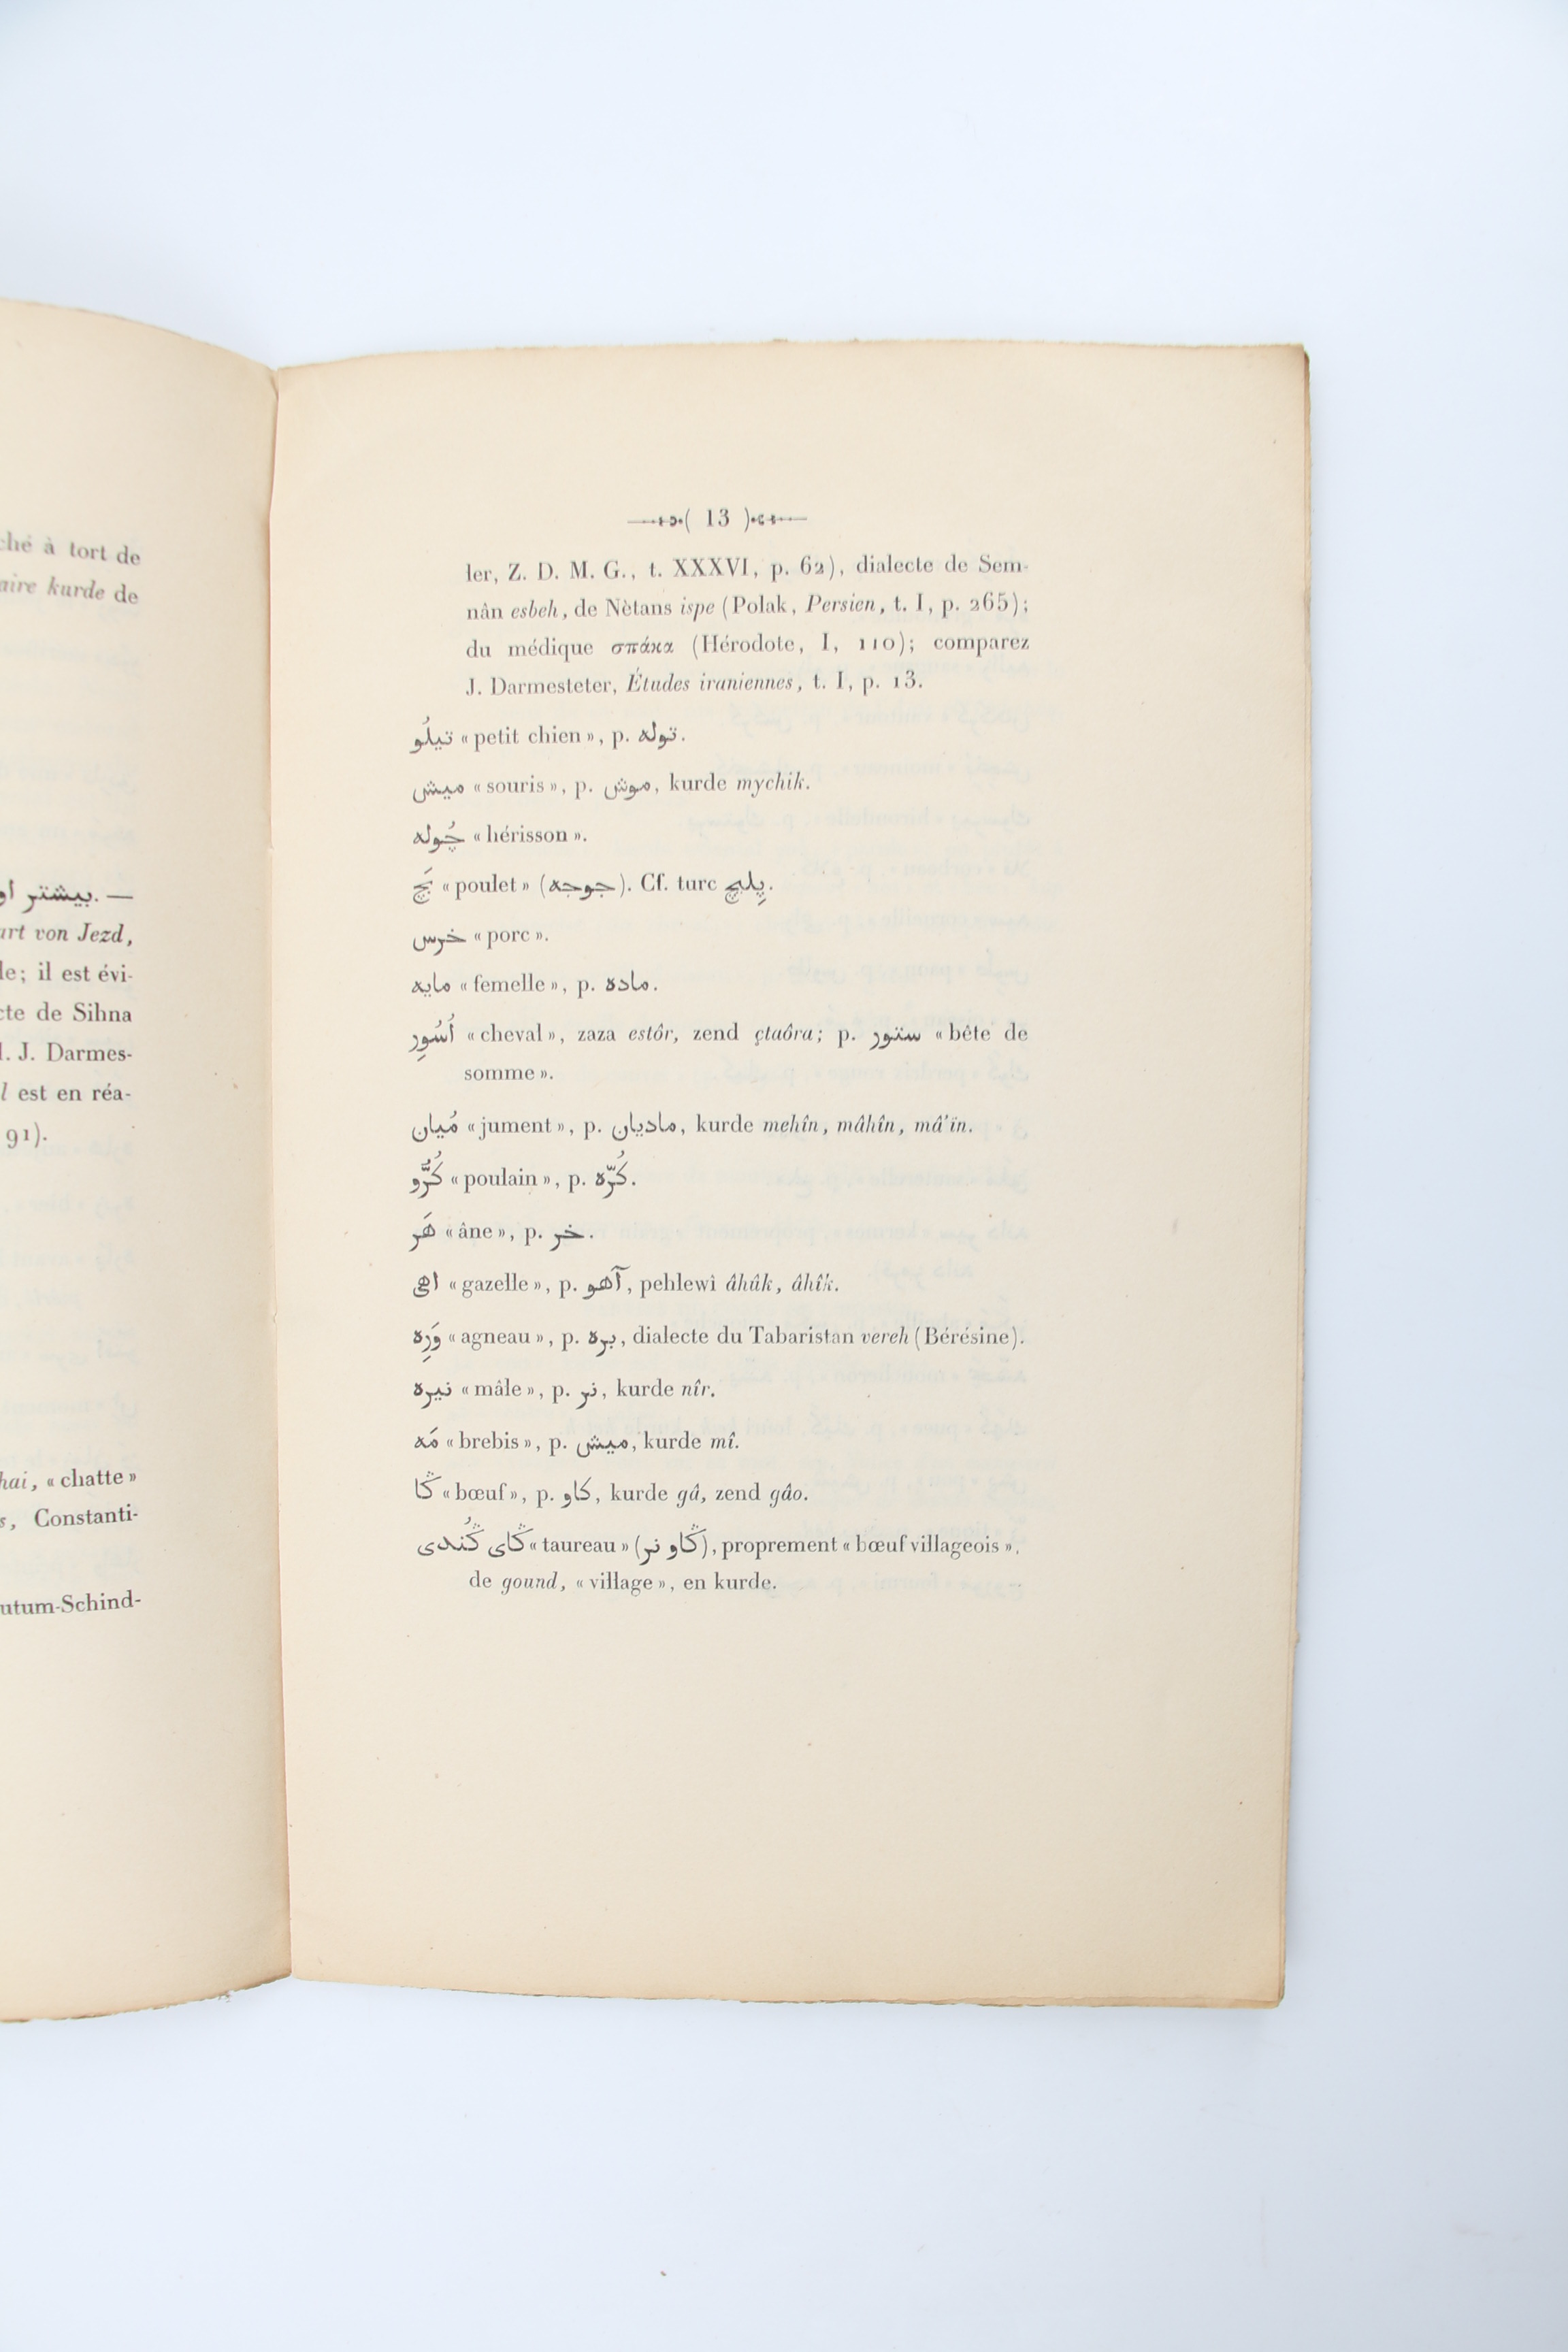 ché à tort de
aire kurde de
— .بيشتر او
art von Jezd,
le; il est évi-
cte de Sihna
J. Darmes-
l est en réa-
91).
hai, « chatte »
s, Constanti-
utum-Schind-
( 13 )
ler, Z. D. M. G., t. XXXVI, p. 62), dialecte de Sem-
nân esbeh, de Nètans ispe (Polak, Persien, t. I, p. 265);
du médique σπάκα (Hérodote, I, 110); comparez
J. Darmesteter, Études iraniennes, t. I, p. 13.
تيلُو « petit chien », p. توله.
ميش « souris », p. موش, kurde mychik.
چُوله « hérisson ».
بَچ « poulet » (جوجه). Cf. turc پِليچ.
خرس « porc ».
مايه « femelle », p. ماده.
اُسُورِ « cheval », zaza estôr, zend çtaôra; p. ستور « bête de
somme ».
مُيان « jument », p. ماديان, kurde mehîn, mâhîn, mâ'ïn.
كُرُّو « poulain », p. كُرّه.
هَر « âne », p. خر.
اهى « gazelle », p. آهو, pehlewî âhûk, âhîk.
وَرِه « agneau », p. بره, dialecte du Tabaristan vereh (Bérésine).
نيره « mâle », p. نر, kurde nîr.
مَه « brebis », p. ميش, kurde mî.
ڭا « bœuf », p. كاو, kurde gâ, zend gâo.
ڭاى ڭُندى « taureau » (ڭاو نر), proprement « bœuf villageois »,
de gound, « village », en kurde.